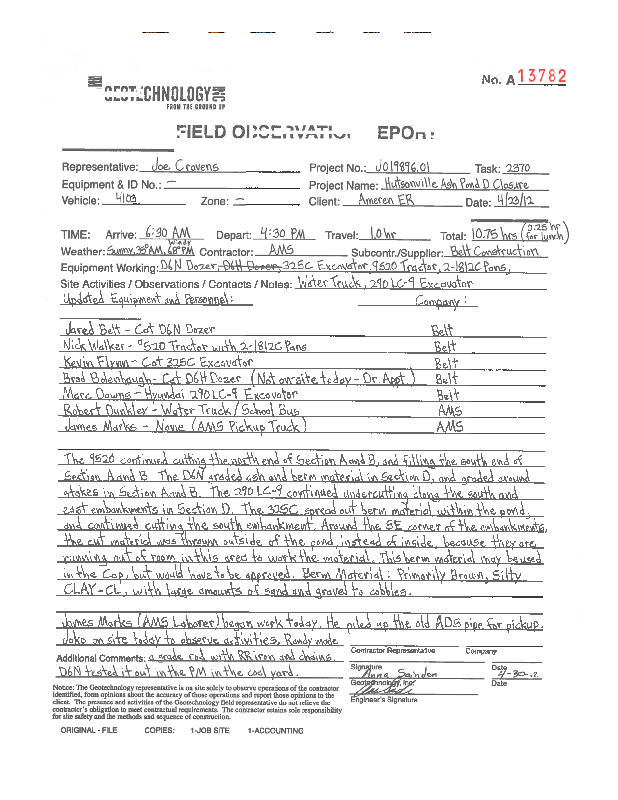 No. A 13782
GEOTECHNOLOGY
FROM THE GROUND UP
FIELD OBSERVATION REPORT
Representative: Joe Cravens Project No.: J019896.01 Task: 2370
Equipment & ID No.: — Project Name: Hutsonville Ash Pond D Closure
Vehicle: 4103 Zone: — Client: Ameren ER Date: 4/23/12
TIME: Arrive: 6:30 AM Depart: 4:30 PM Travel: 1.0 hr Total: 10.75 hrs (0.25 hr for lunch)
Weather: Sunny, 38°AM, 68°PM Windy Contractor: AMS Subcontr./Supplier: Belt Construction
Equipment Working: D6N Dozer, D6H Dozer, 325C Excavator, 9520 Tractor, 2-1812C Pans,
Site Activities / Observations / Contacts / Notes: Water Truck, 290 LC-9 Excavator
Updated Equipment and Personnel: Company:
Jared Belt - Cat D6N Dozer Belt
Nick Walker - 9520 Tractor with 2-1812C Pans Belt
Kevin Flynn - Cat 325C Excavator Belt
Brad Bolenbaugh - Cat D6H Dozer (Not on site today - Dr. Appt.) Belt
Marc Downs - Hyundai 290 LC-9 Excavator Belt
Robert Dunkley - Water Truck/School Bus AMS
James Marks - None (AMS Pickup Truck) AMS
The 9520 continued cutting the north end of Section A and B, and filling the south end of
Section A and B. The D6N graded ash and berm material in Section D, and graded around
stakes in Section A and B. The 290 LC-9 continued undercutting along the south and
east embankments in Section D. The 325C spread out berm material within the pond,
and continued cutting the south embankment. Around the SE corner of the embankments,
the cut material was thrown outside of the pond, instead of inside, because they are
running out of room in this area to work the material. This berm material may be used
in the Cap, but would have to be approved. Berm Material: Primarily Brown, Silty
CLAY-CL, with large amounts of sand and gravel to cobbles.
James Marks (AMS Laborer) began work today. He piled up the old ADS pipe for pickup.
Jake on site today to observe activities. Randy made
Additional Comments: a grade rod with RR iron and chains.
D6N tested it out in the PM in the coal yard.
Contractor Representative Company
Signature Date
Anna Saindon 4-30-12
Geotechnology, Inc. Date
Engineer's Signature
Notice: The Geotechnology representative is on site solely to observe operations of the contractor
identified, form opinions about the accuracy of those operations and report those opinions to the
client. The presence and activities of the Geotechnology field representative do not relieve the
contractor's obligation to meet contractual requirements. The contractor retains sole responsibility
for site safety and the methods and sequence of construction.
ORIGINAL - FILE COPIES: 1-JOB SITE 1-ACCOUNTING